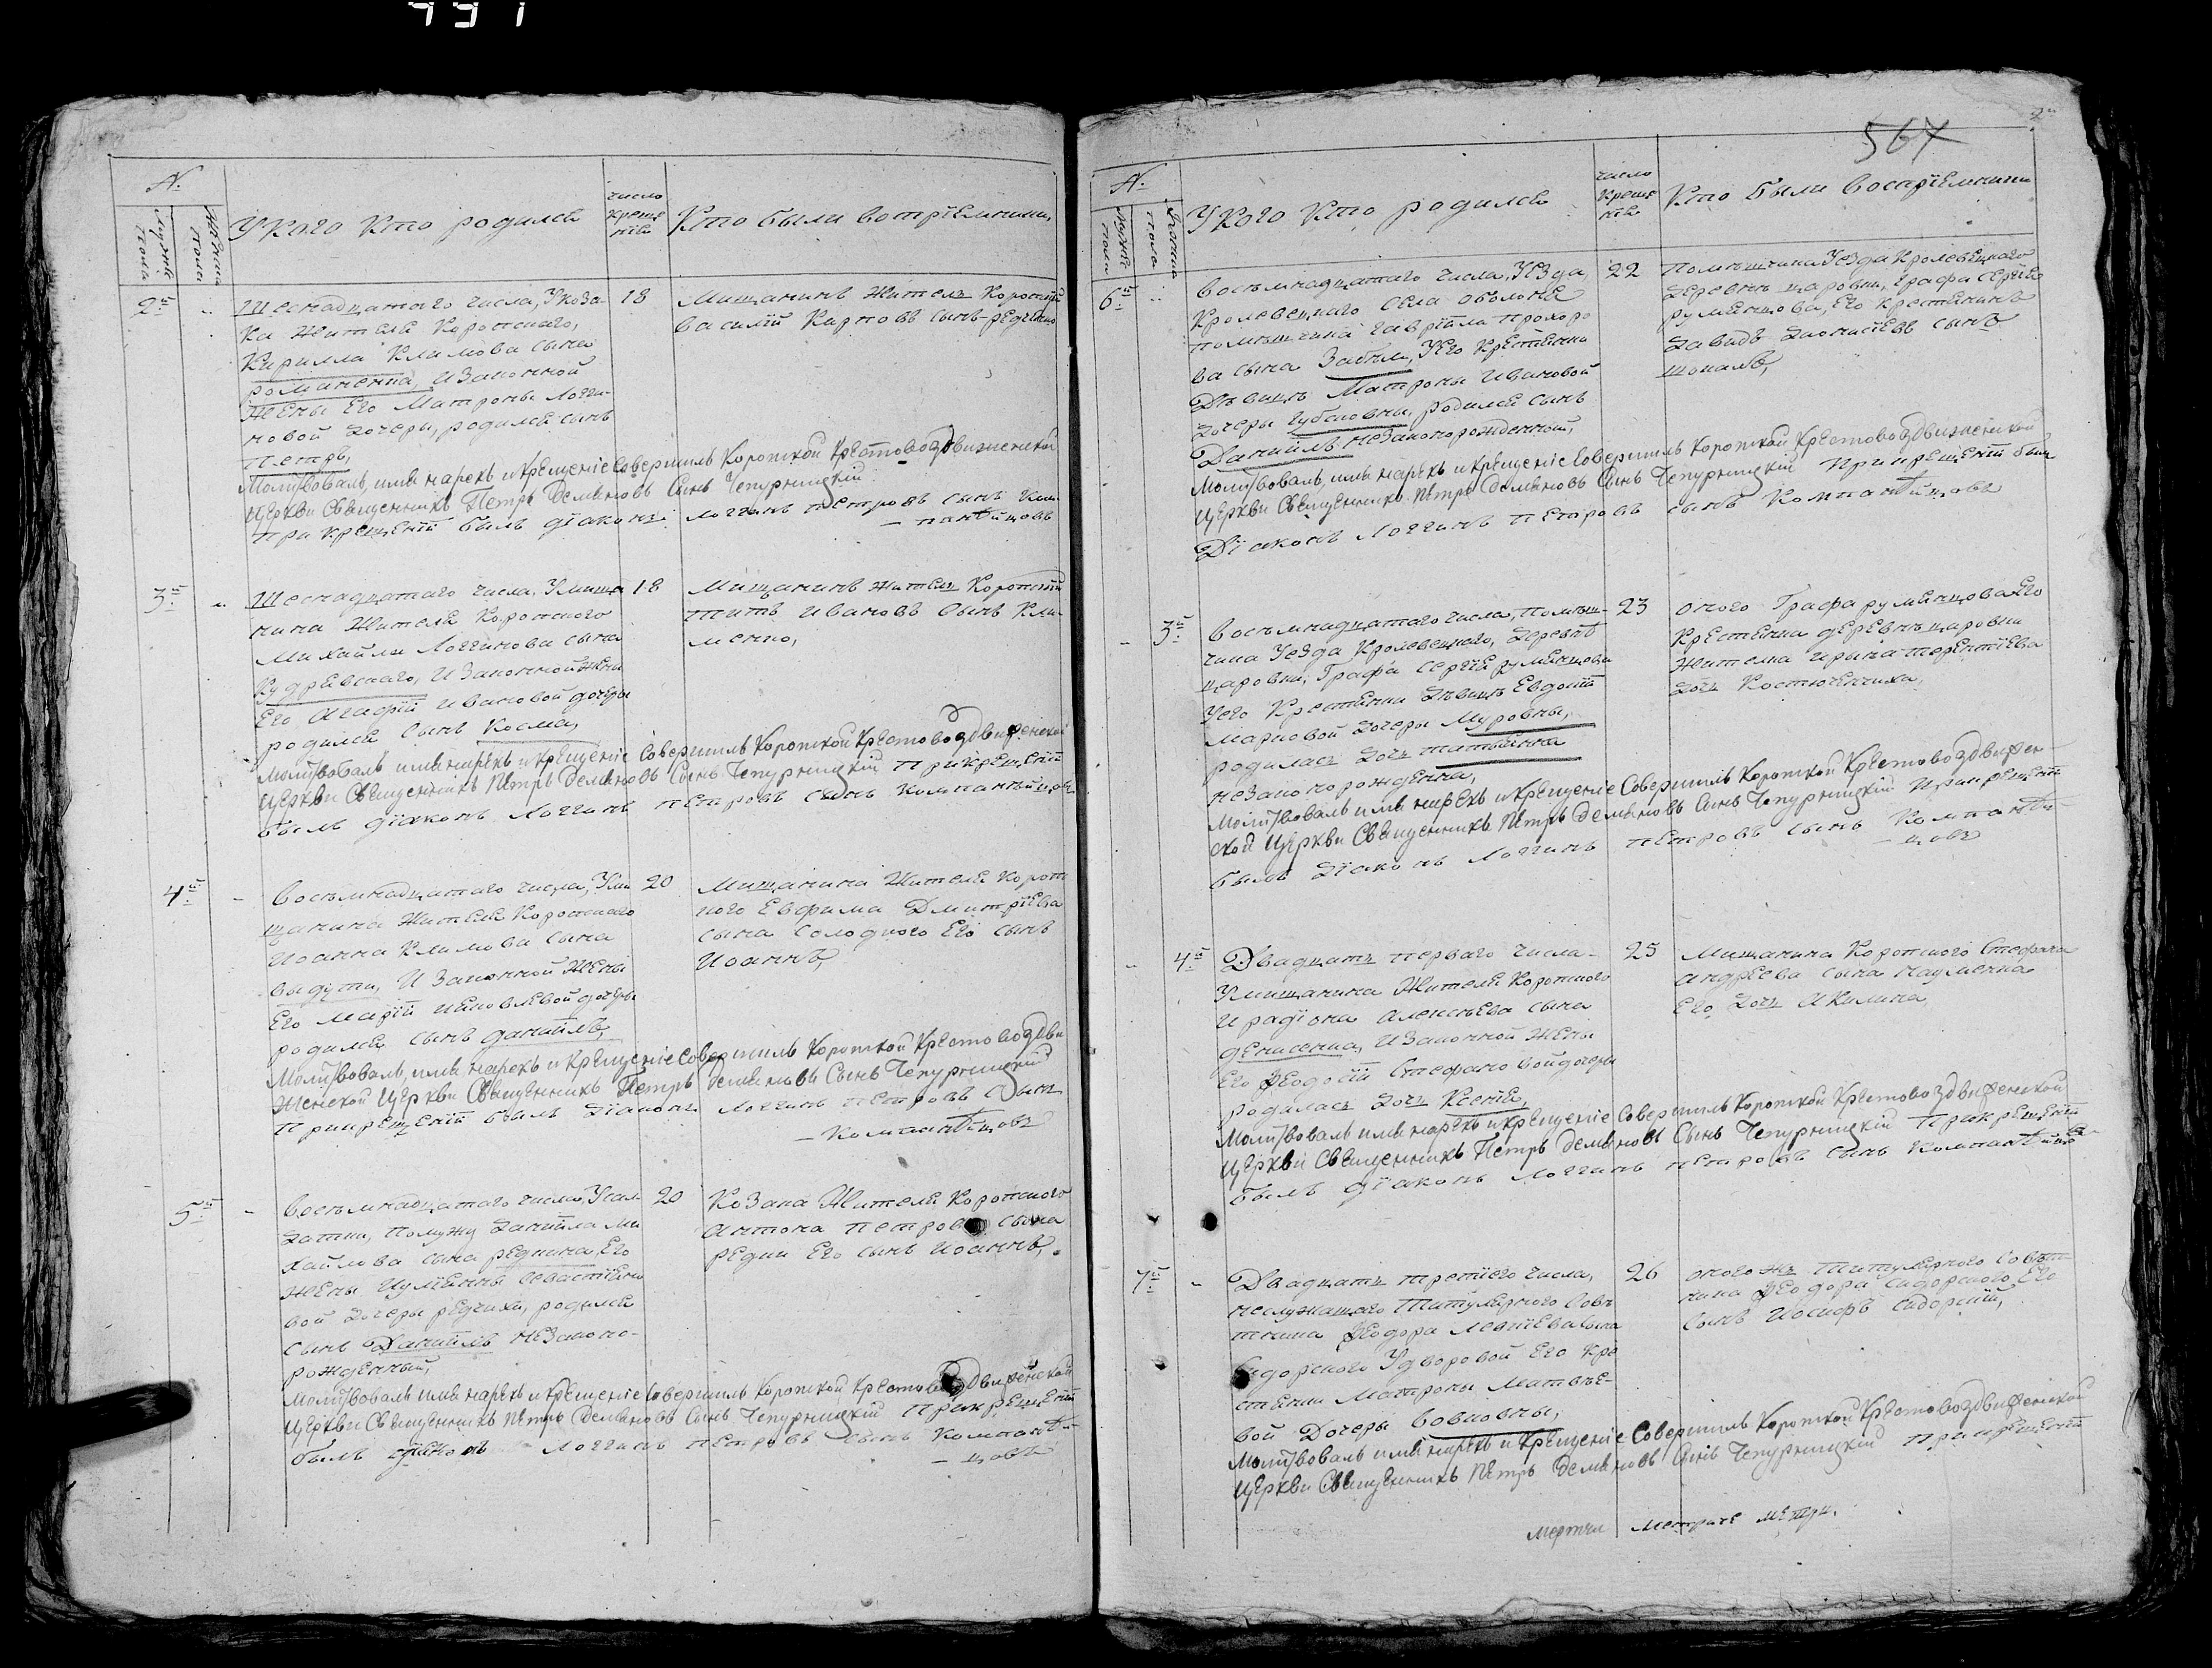 567
№
Мужеска пола
Женска пола
У кого кто родился
число крещенія
Кто были воспріемники
2й
Шеснадцатаго числа, У коза-
ка Жителя Коропского,
Кирилла Климова сына
романенка, и Законной
Жены Его Матроны Логги-
новой дочери, родился сынъ
Петръ,
18
Мищанинъ Жытель Коропскій
василій Карповъ сынъ
Молитвовалъ, имя нарекъ и Крещеніе Совершилъ Коропской Крестовоздвиженской
Церкви Священникъ Петръ Демяновъ Сынъ Чепурницкій
При крещеніи былъ діаконъ Логгинъ Петровъ сынъ Ком-
-панѣйцовъ
3й
Шеснадцатаго числа, У мища-
нина Жителя Коропского
Михайла Логгинова сына
Кудревского, и Законной жены
Его Агафіи ивановой дочеры
родился Сынъ Косма,
18
Мищанинъ Житель Коропскій
Титъ ивановъ сынъ Кли-
менко,
Молитвовалъ имя нарекъ и Крещеніе Совершилъ Коропской Крестовоздвиженской
Церкви Священникъ Петръ Демяновъ Сынъ Чепурницкій При крещеніи
былъ діаконъ Логгинъ Петровъ сынъ Компанѣйцовъ
4й
Восѣмнадцатаго числа, У ми-
щанина Жителя Коропского
Иоанна Климова сына
выдути, и Законной Жены
Его Маріи иаковлевой дочеры
родился сынъ даніилъ,
20
Мищанина Жителя Короп
ского Евфима Дмитріева
сына Солодкого Его сынъ
Иоаннъ,
Молитвовалъ, имя нарекъ и Крещеніе Совершилъ Коропской Крестовоздви
женской Церкви Священникъ Петръ Демяновъ Сынъ Чепурницкій
При крещеніи былъ діаконъ Логгинъ Петровъ Сынъ
-Компанѣйцовъ
5й
Восѣмнадцатаго числа, У сол-
датки, По мужу Даніила Ми
хайлова сына редкина, Его
жены Иулианны Севастіяно
вой дочеры редчихи, родился
сынъ Даніилъ незаконо-
рожденный,
20
Козака Жителя Коропского
Антона Петрова сына
редки Его сынъ Иоаннъ,
Молитвовалъ имя нарекъ и Крещеніе Совершилъ Коропской Крестовоздвиженской
Церкви Священникъ Петръ Демяновъ Сынъ Чепурницкій При крещеніи
былъ діаконъ Логгинъ Петровъ сынъ Компанѣй-
-цовъ
№
Мужеска пола
Женска пола
У кого кто родился
число крещенія
Кто были воспріемники
6й
Восѣмнадцатаго числа, Уѣзда
Кролевецкого села оболоня
помѣщика гавріила прохоро
ва сына Забѣлы, У Его Крестянки
Дѣвицъ Матроны ивановой
дочеры Губсковны, родился сынъ
Даніилъ незаконорожденный,
22
Помѣщика Уѣзда Кролевецкого
деревнѣ царовки, графа Сергѣя
румянцова, Его крестянинъ
давидъ сынъ
Молитвовалъ, имя нарекъ и Крещеніе Совершилъ Коропской Крестовоздвиженской
Церкви Священникъ Петръ Демяновъ Сынъ Чепурницкій При крещеніи былъ
Діаконъ Логгинъ Петровъ сынъ Компанѣйцовъ
3й
Восѣмнадцатаго числа, помѣщ-
чика Уѣзда Кролевецкого, деревнѣ
царовки, Графа Сергія румянцова
У его Крестянки дѣвицъ Евдокіи
Марковой дочеры Муровны,
родилась дочь татиянна
незаконорожденна,
23
оного Графа румянцова Его
Крестянка деревнѣ царовки
Жителка ирына терентіева
дочь Костюченчиха,
Молитвовалъ имя нарекъ и Крещеніе Совершилъ Коропской Крестовоздвижен-
ской Церкви Священникъ Петръ Демяновъ Сынъ Чепурницкій При крещеніи
былъ діаконъ Логгинъ Петровъ сынъ Компанѣй-
-цовъ
4й
Двадцать перваго числа
У мищанина Жителя Коропского
Ирадіона Алексѣева сына
денисенка, и Законной Жены
Его Ѳеодосіи Стефановой дочеры
родилась дочь Ксенія,
25
Мищанина Коропского Стефана
Андреева сына науменка
Его дочь Акилина
Молитвовалъ имя нарекъ и Крещеніе Совершилъ Коропской Крестовоздвиженской
Церкви Священникъ Петръ Демяновъ Сынъ Чепурницкій При крещеніи
былъ діаконъ Логгинъ Петровъ сынъ Компанѣйцовъ
7й
Двадцать третіего числа,
неслужащего Титулярного Совѣ
тника Ѳеодора Леонтіева сына
Сидорского У дворовой Его кре
стянки Матроны Матвѣе-
вой Дочеры Вовковны,
26
оного жъ Титулярного Совѣт
ника Ѳеодора Сидорского, Его
сынъ Иосифъ Сидорскій,
Молитвовалъ имя нарекъ и Крещеніе Совершилъ Коропской Крестовоздвиженской
Церкви Священникъ Петръ Демяновъ Сынъ Чепурницкій При крещеніи